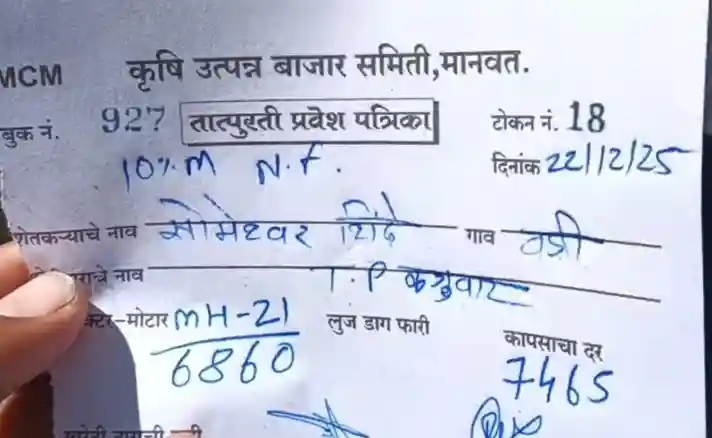 MCM कृषि उत्पन्न बाजार समिती,मानवत.
बुक नं. 927 तात्पुरती प्रवेश पत्रिका टोकन नं. 18
10% M N.F. दिनांक 22/12/25
शेतकऱ्याचे नाव सोमेश्वर शिंदे गाव वझी
नाव T.P
मोटार MH-21 लुज डाग फारी कापसाचा दर
6860 7465